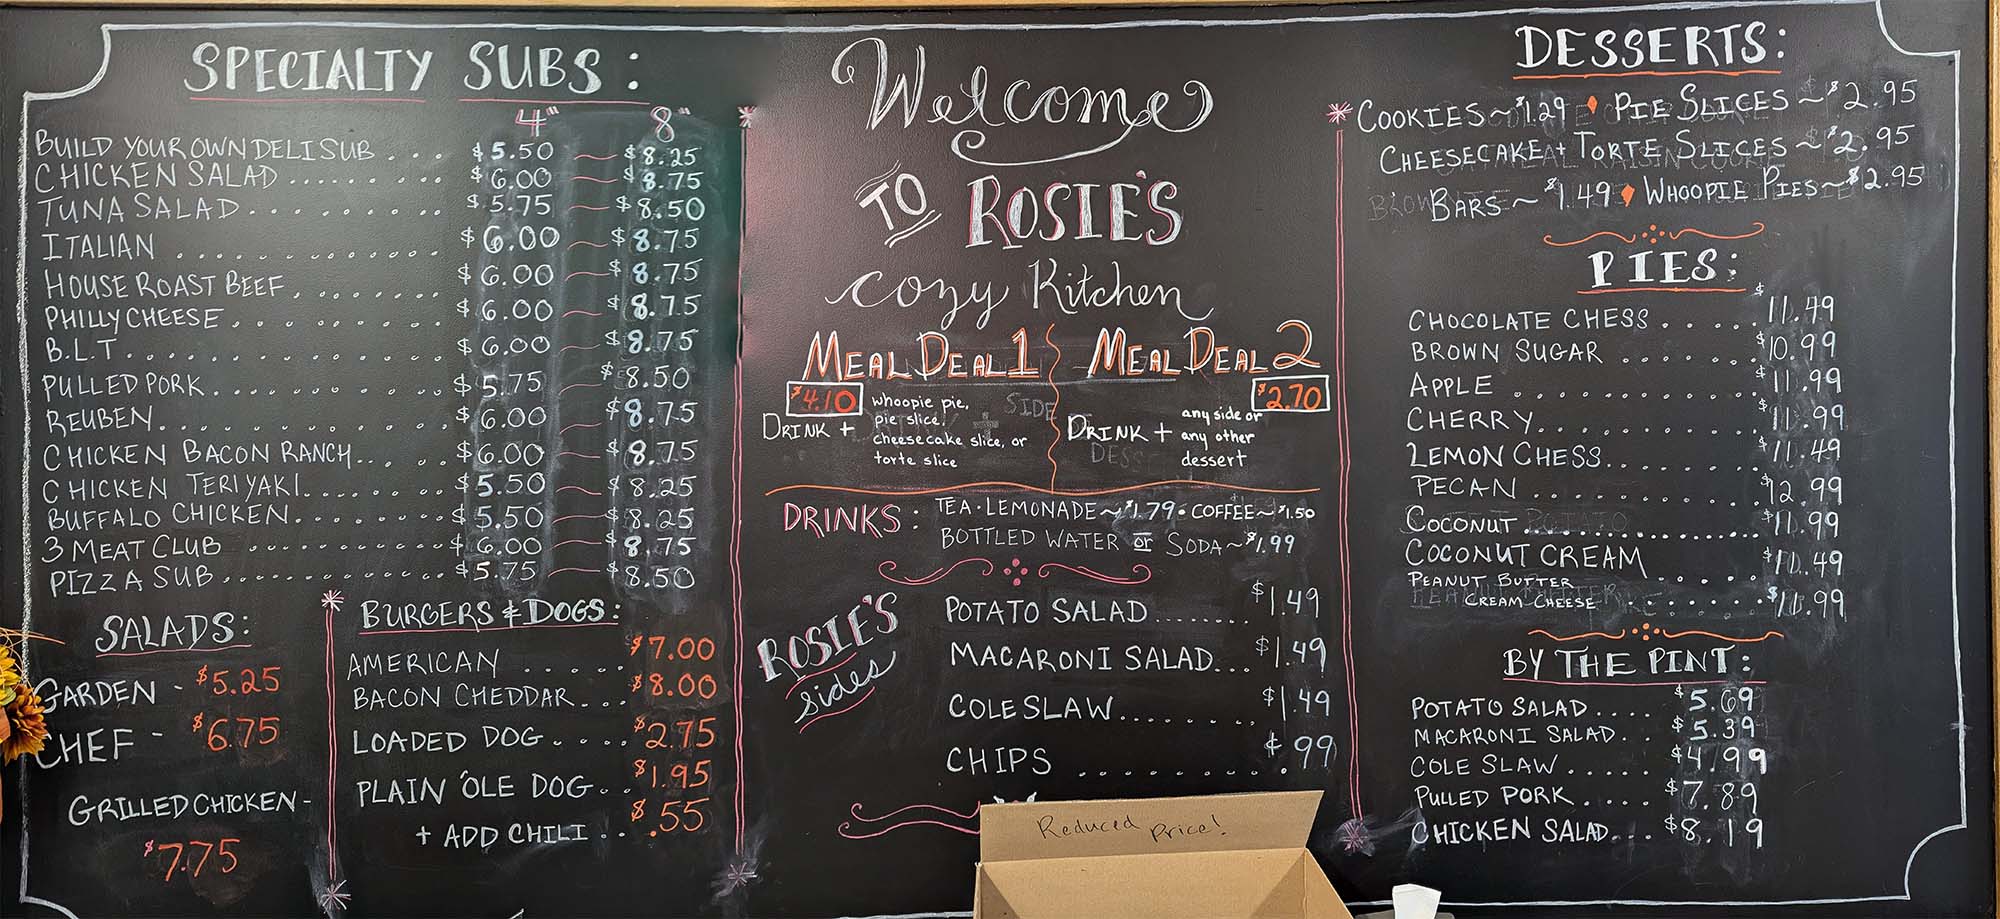 SPECIALTY SUBS:
4" 8"
BUILD YOUR OWN DELI SUB . . . $5.50 ~ $8.25
CHICKEN SALAD ....... $6.00 ~ $8.75
TUNA SALAD ......... $5.75 ~ $8.50
ITALIAN ............. $6.00 ~ $8.75
HOUSE ROAST BEEF ........ $6.00 ~ $8.75
PHILLY CHEESE ......... $6.00 ~ $8.75
B.L.T. ............. $6.00 ~ $8.75
PULLED PORK .......... $5.75 ~ $8.50
REUBEN ............ $6.00 ~ $8.75
CHICKEN BACON RANCH ..... $6.00 ~ $8.75
CHICKEN TERIYAKI ........ $5.50 ~ $8.25
BUFFALO CHICKEN ........ $5.50 ~ $8.25
3 MEAT CLUB .......... $6.00 ~ $8.75
PIZZA SUB ............ $5.75 ~ $8.50
SALADS:
GARDEN - $5.25
CHEF - $6.75
GRILLED CHICKEN -
$7.75
BURGERS & DOGS:
AMERICAN ...... $7.00
BACON CHEDDAR .... $8.00
LOADED DOG .... $2.75
PLAIN 'OLE DOG .. $1.95
+ ADD CHILI .. $.55
Welcome
TO ROSIE'S
cozy Kitchen
MEAL DEAL 1
$4.10
DRINK +
whoopie pie,
pie slice,
cheesecake slice, or
torte slice
MEAL DEAL 2
$2.70
DRINK +
any side or
any other
dessert
DRINKS: TEA · LEMONADE ~ $1.79 · COFFEE ~ $1.50
BOTTLED WATER or SODA ~ $1.99
ROSIE'S
sides
POTATO SALAD ........ $1.49
MACARONI SALAD... $1.49
COLE SLAW ........ $1.49
CHIPS .......... ¢.99
Reduced price!
DESSERTS:
COOKIES ~ $1.29 ♦ PIE SLICES ~ $2.95
CHEESECAKE + TORTE SLICES ~ $2.95
BARS ~ $1.49 ♦ WHOOPIE PIES ~ $2.95
PIES:
CHOCOLATE CHESS ...... $11.49
BROWN SUGAR ....... $10.99
APPLE ............ $11.99
CHERRY .......... $11.99
LEMON CHESS ....... $11.49
PECAN ........... $12.99
COCONUT .......... $11.99
COCONUT CREAM ..... $11.49
PEANUT BUTTER
CREAM CHEESE ....... $11.99
BY THE PINT:
POTATO SALAD .... $5.69
MACARONI SALAD .. $5.39
COLE SLAW ..... $4.99
PULLED PORK .... $7.89
CHICKEN SALAD... $8.19